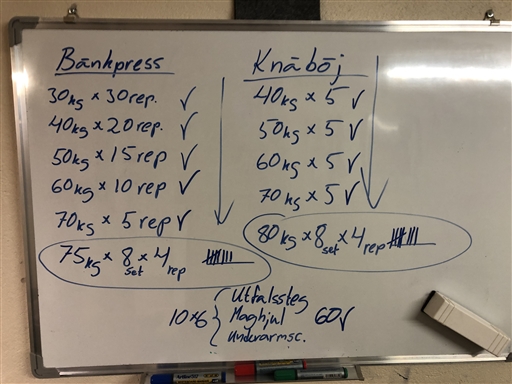 Bänkpress
30kg × 30rep. ✓
40kg × 20rep. ✓
50kg × 15rep ✓
60kg × 10rep ✓
70kg × 5rep ✓
75kg × 8 set × 4 rep
Knäböj
40kg × 5 ✓
50kg × 5 ✓
60kg × 5 ✓
70kg × 5 ✓
80kg × 8 set × 4 rep
10×6 { Utfallssteg
Maghjul
Underarmsc.
60 ✓